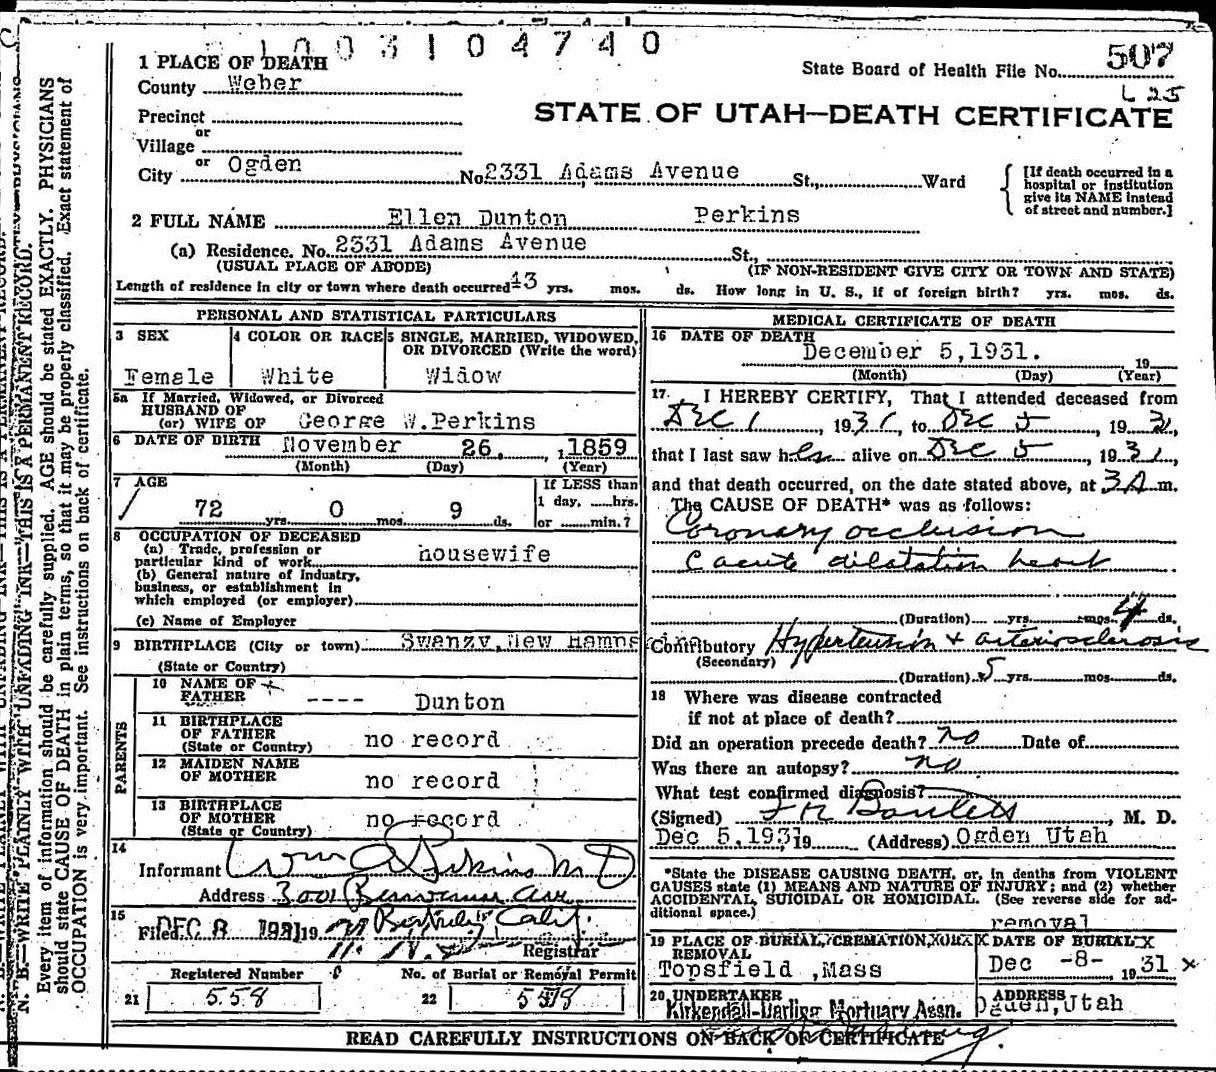 1003104740
507
L 25
State Board of Health File No.
1 PLACE OF DEATH
County Weber
STATE OF UTAH—DEATH CERTIFICATE
Precinct
or
Village
or
City Ogden No. 2331 Adams Avenue St., Ward
[If death occurred in a hospital or institution give its NAME instead of street and number.]
2 FULL NAME Ellen Dunton Perkins
(a) Residence. No. 2331 Adams Avenue St.,
(USUAL PLACE OF ABODE) (IF NON-RESIDENT GIVE CITY OR TOWN AND STATE)
Length of residence in city or town where death occurred 43 yrs. mos. ds. How long in U. S., if of foreign birth? yrs. mos. ds.
PERSONAL AND STATISTICAL PARTICULARS
3 SEX
Female
4 COLOR OR RACE
White
5 SINGLE, MARRIED, WIDOWED, OR DIVORCED (Write the word)
Widow
5a If Married, Widowed, or Divorced
HUSBAND OF
(or) WIFE OF George W. Perkins
6 DATE OF BIRTH November 26, 1859
(Month) (Day) (Year)
7 AGE
72 yrs. 0 mos. 9 ds.
If LESS than
1 day, hrs.
or min.?
8 OCCUPATION OF DECEASED
(a) Trade, profession or
particular kind of work housewife
(b) General nature of industry,
business, or establishment in
which employed (or employer)
(c) Name of Employer
9 BIRTHPLACE (City or town) Swanzy, New Hampshire
(State or Country)
PARENTS
10 NAME OF
FATHER ---- Dunton
11 BIRTHPLACE
OF FATHER no record
(State or Country)
12 MAIDEN NAME
OF MOTHER no record
13 BIRTHPLACE
OF MOTHER no record
(State or Country)
14
Informant Wm A Perkins M D
Address 3001 Benvenue Ave
Berkeley Calif.
15
Filed DEC 8 1931 19
Registrar
Registered Number No. of Burial or Removal Permit
21 558 22 558
MEDICAL CERTIFICATE OF DEATH
16 DATE OF DEATH
December 5, 1931. 19
(Month) (Day) (Year)
17. I HEREBY CERTIFY, That I attended deceased from
Dec 1, 1931, to Dec 5, 1931,
that I last saw her alive on Dec 5, 1931,
and that death occurred, on the date stated above, at 3A m.
The CAUSE OF DEATH* was as follows:
Coronary occlusion
c acute dilatation heart
(Duration) yrs. mos. 4 ds.
Contributory Hypertension + arteriosclerosis
(Secondary)
(Duration) 5 yrs. mos. ds.
18 Where was disease contracted
if not at place of death?
Did an operation precede death? no Date of
Was there an autopsy? no
What test confirmed diagnosis?
(Signed) F K Bartlett, M. D.
Dec 5, 1931 19 (Address) Ogden Utah
*State the DISEASE CAUSING DEATH, or, in deaths from VIOLENT
CAUSES state (1) MEANS AND NATURE OF INJURY; and (2) whether
ACCIDENTAL, SUICIDAL OR HOMICIDAL. (See reverse side for ad-
ditional space.)
removal
19 PLACE OF BURIAL, CREMATION, OR
REMOVAL
Topsfield, Mass
DATE OF BURIAL
Dec -8- 1931 x
20 UNDERTAKER
Kirkendall-Darling Mortuary Assn.
ADDRESS
Ogden, Utah
READ CAREFULLY INSTRUCTIONS ON BACK OF CERTIFICATE
N. B.—WRITE PLAINLY WITH UNFADING INK—THIS IS A PERMANENT RECORD.
Every item of information should be carefully supplied. AGE should be stated EXACTLY. PHYSICIANS
should state CAUSE OF DEATH in plain terms, so that it may be properly classified. Exact statement of
OCCUPATION is very important. See instructions on back of certificate.